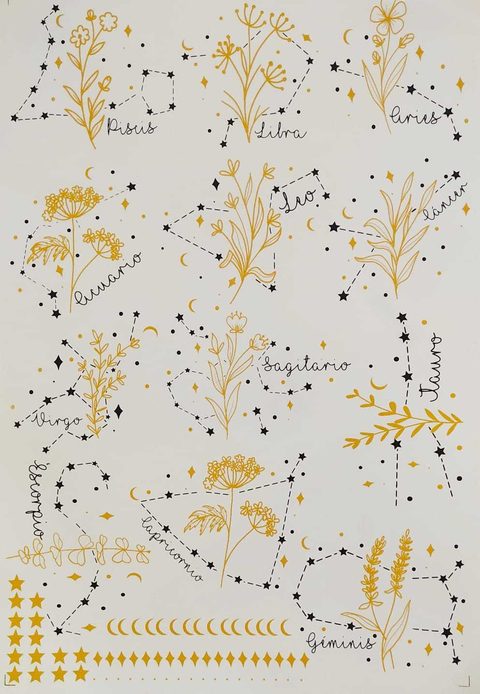 Piscis
Libra
Aries
Acuario
Leo
Cáncer
Virgo
Sagitario
Tauro
Escorpio
Capricornio
Géminis